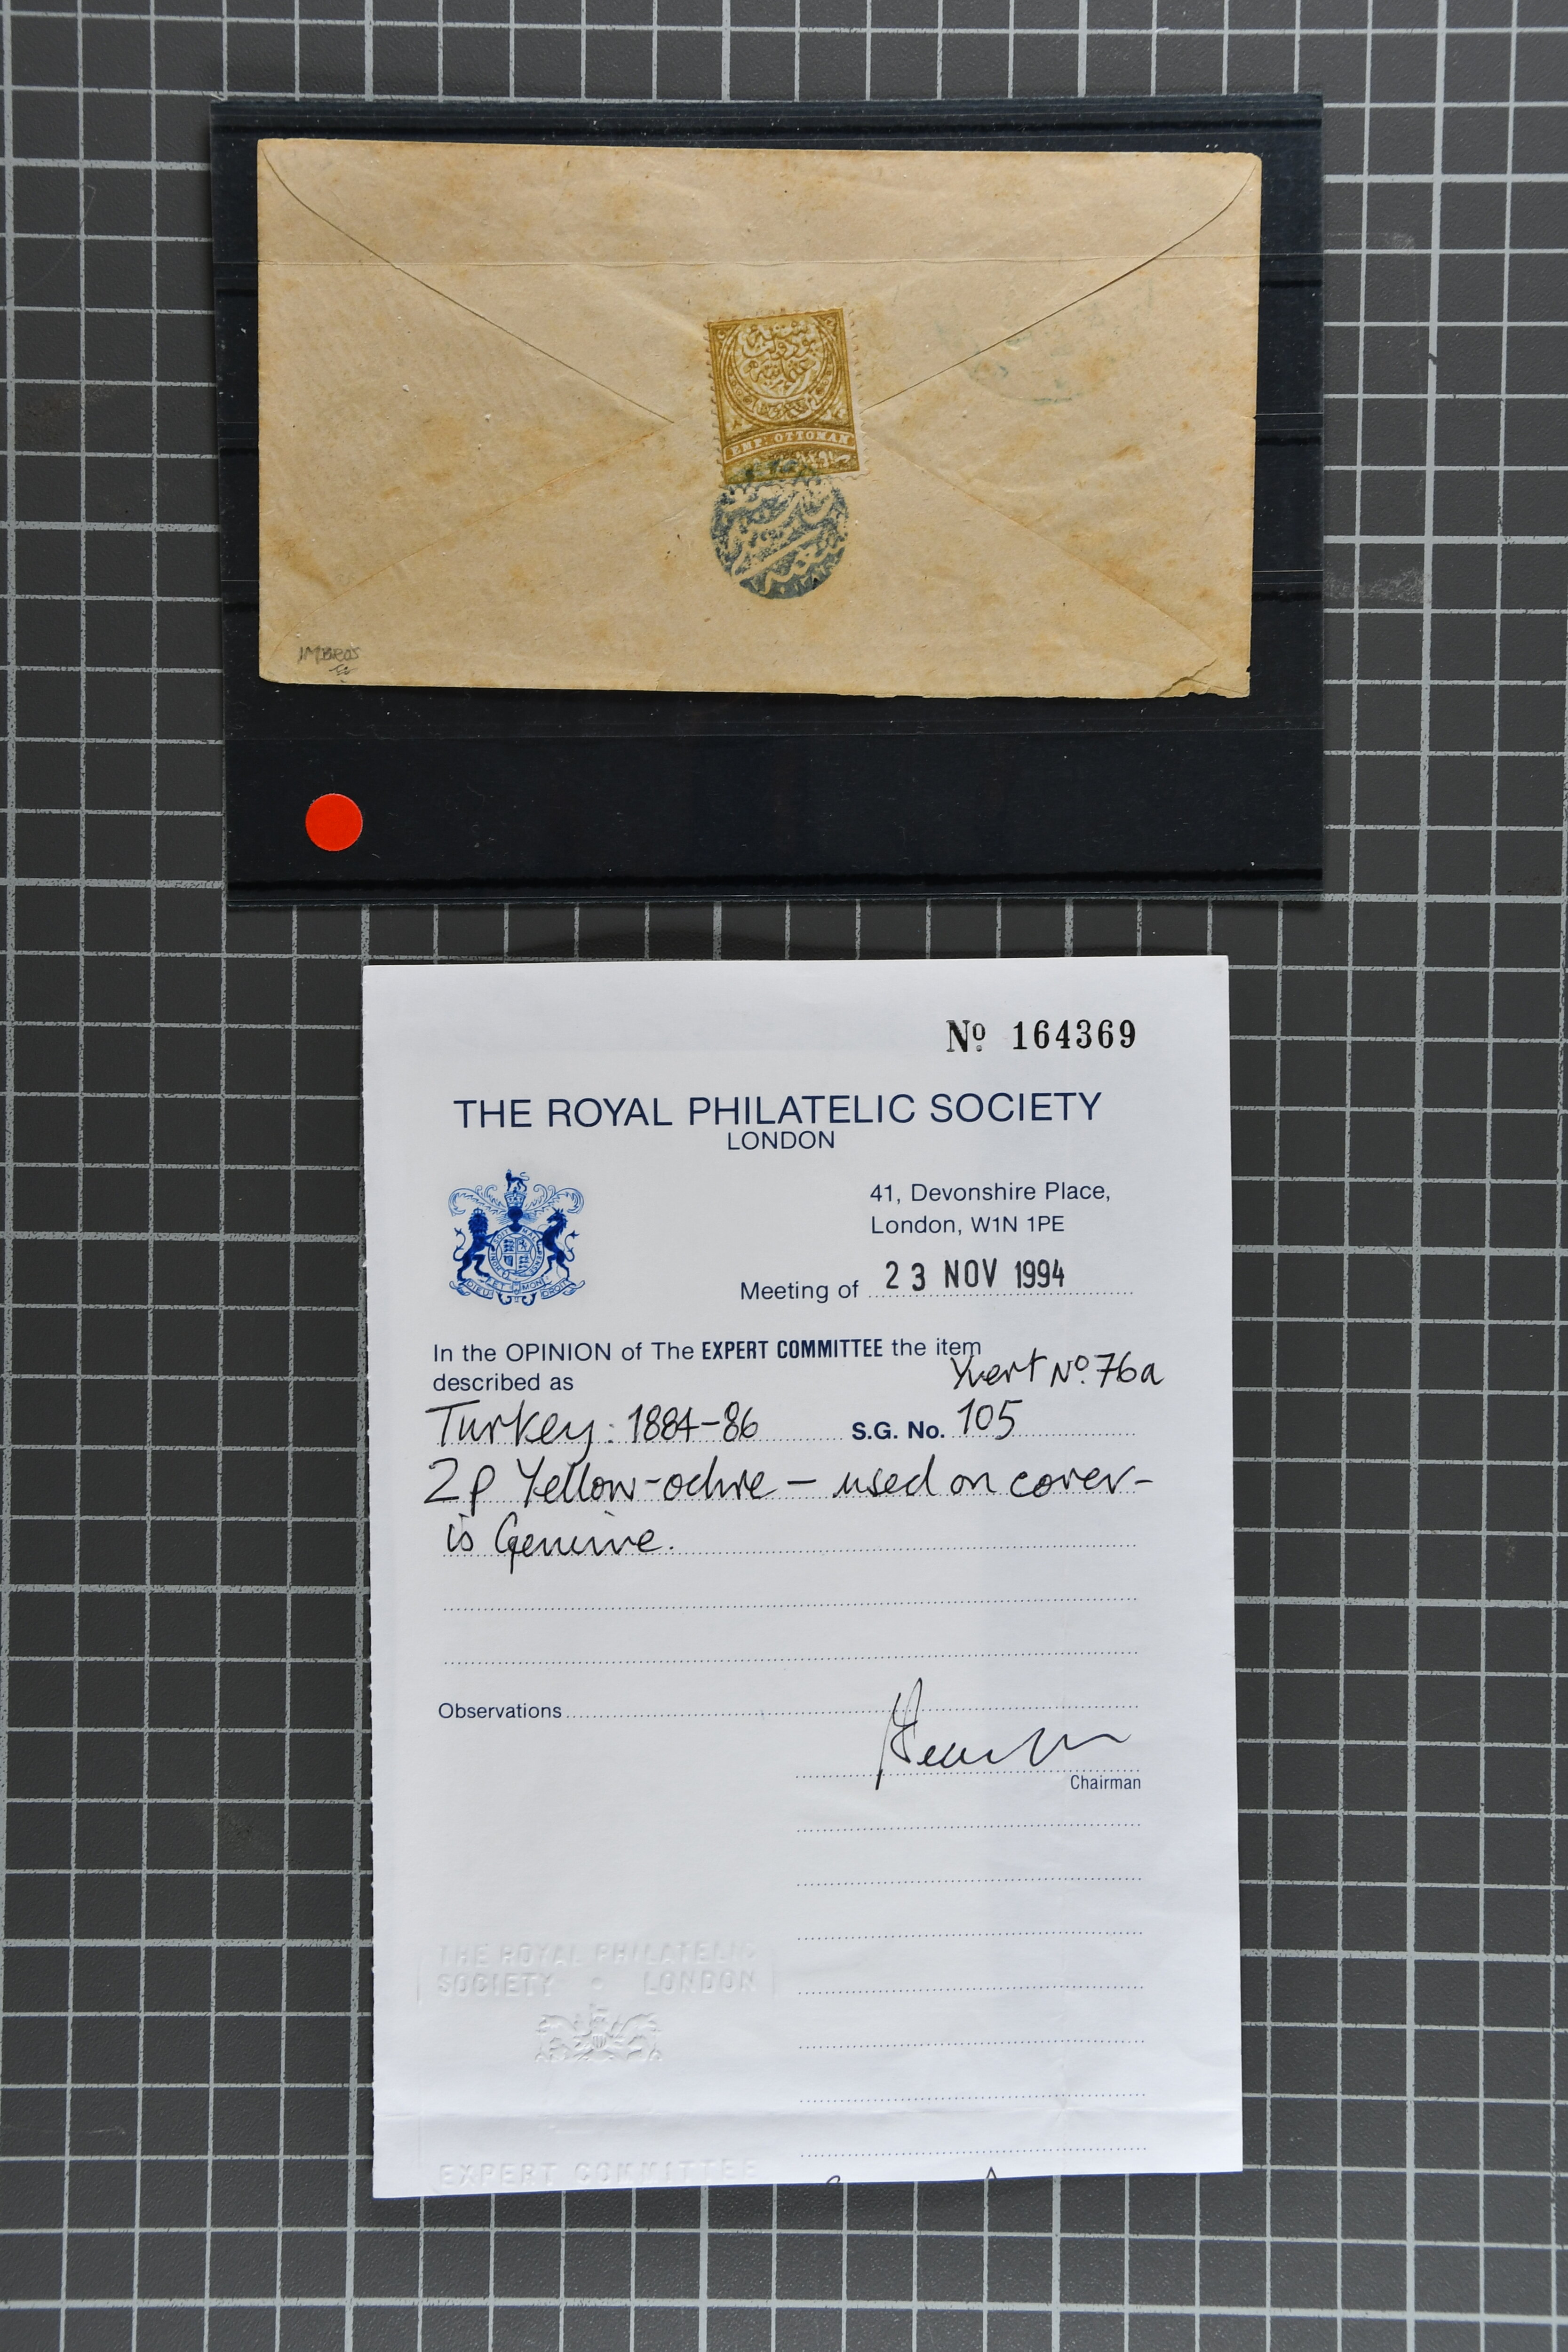 EMP: OTTOMAN
IMBROS
Nº 164369
THE ROYAL PHILATELIC SOCIETY
LONDON
41, Devonshire Place,
London, W1N 1PE
Meeting of 23 NOV 1994
In the OPINION of The EXPERT COMMITTEE the item
described as Yvert Nº 76a
Turkey: 1884-86 S.G. No. 105
2p Yellow-ochre - used on cover -
is Genuine.
Observations
Chairman
THE ROYAL PHILATELIC
SOCIETY • LONDON
EXPERT COMMITTEE